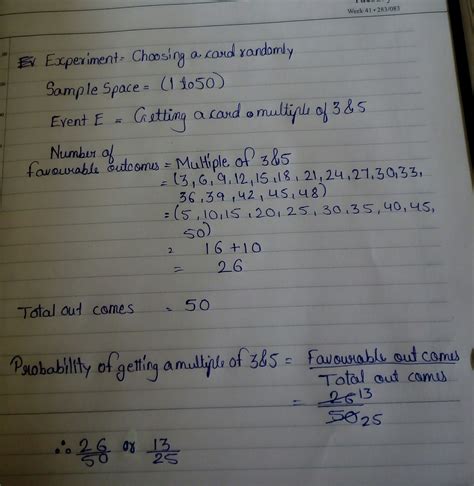 Week 41 • 283/083
Ex Experiment = Choosing a card randomly
Sample Space = (1 to 50)
Event E = Getting a card a multiple of 3 & 5
Number of
favourable outcomes = Multiple of 3 & 5
= (3, 6, 9, 12, 15, 18, 21, 24, 27, 30, 33,
36, 39, 42, 45, 48)
= (5, 10, 15, 20, 25, 30, 35, 40, 45,
50)
= 16 + 10
= 26
Total out comes = 50
Probability of getting a multiple of 3 & 5 = Favourable out comes
Total out comes
= 26 13
50 25
∴ 26/50 or 13/25